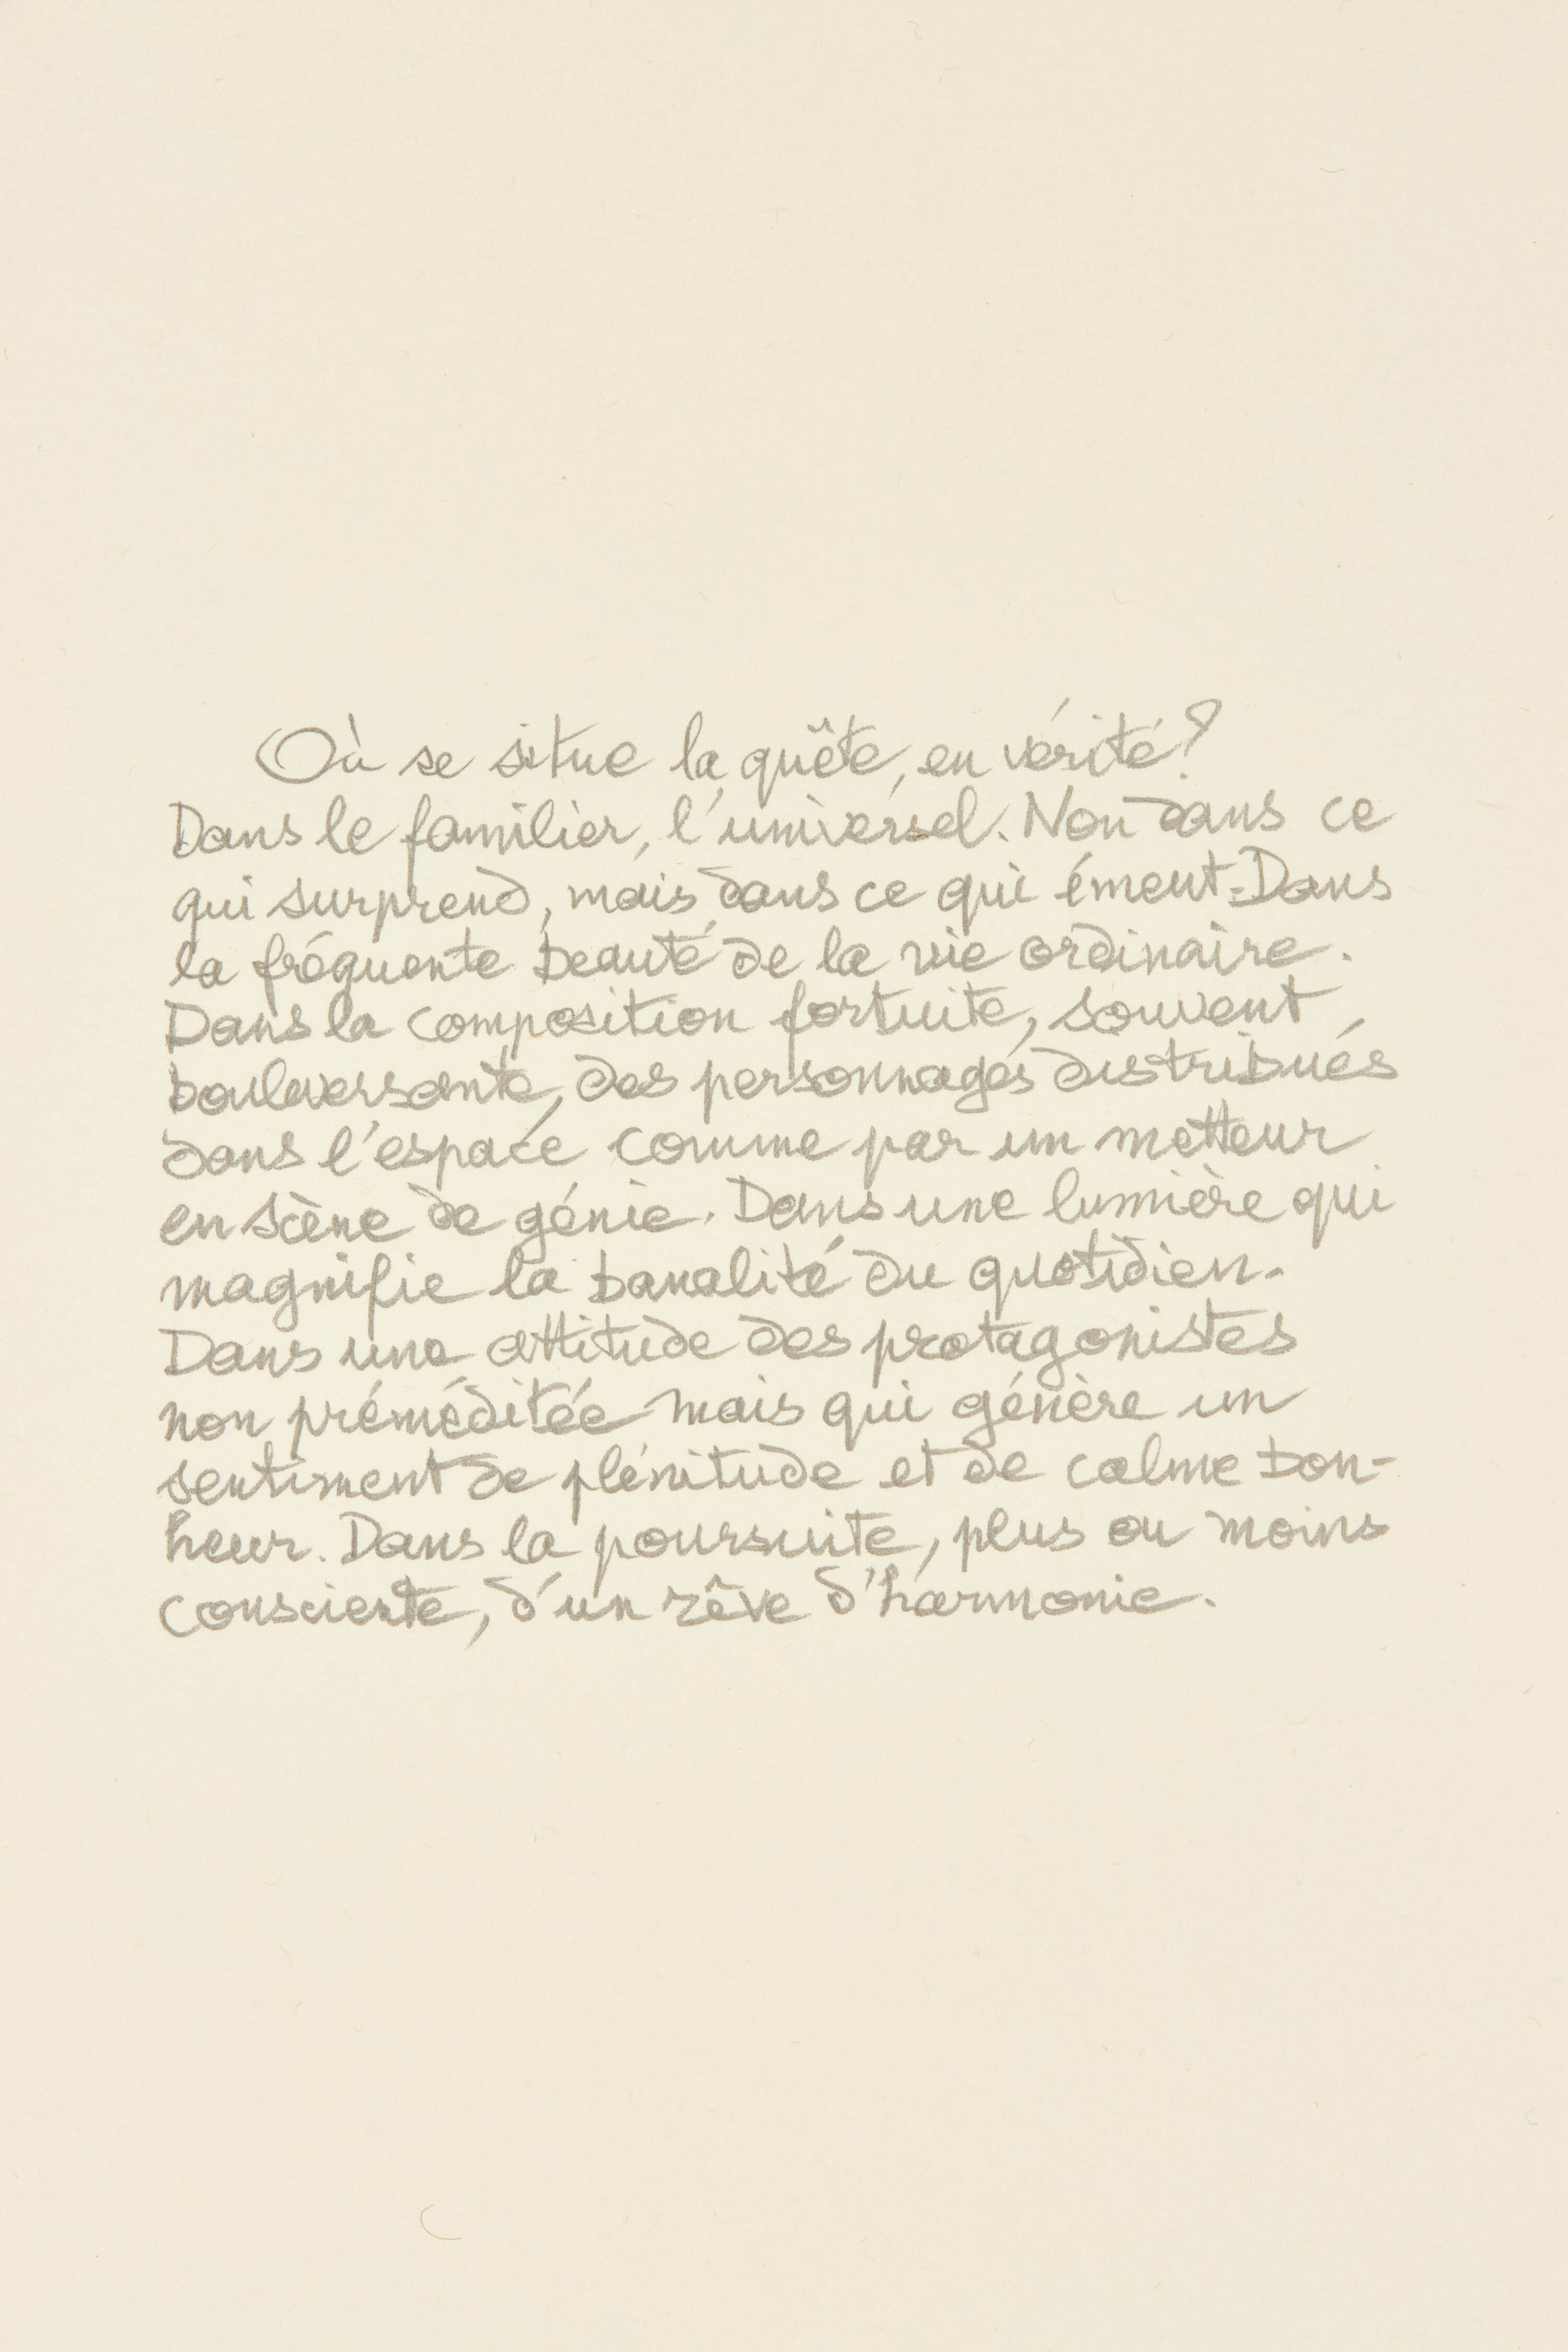 Où se situe la quête, en vérité?
Dans le familier, l'universel. Non dans ce
qui surprend, mais dans ce qui émeut. Dans
la fréquente beauté de la vie ordinaire.
Dans la composition fortuite, souvent
bouleversante, des personnages distribués
dans l'espace comme par un metteur
en scène de génie. Dans une lumière qui
magnifie la banalité du quotidien.
Dans une attitude des protagonistes
non préméditée mais qui génère un
sentiment de plénitude et de calme bon-
heur. Dans la poursuite, plus ou moins
consciente, d'un rêve d'harmonie.